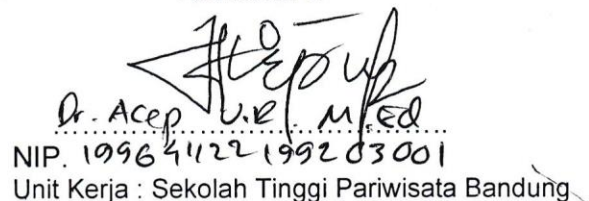 Dr. Acep U.R. M.Ed
NIP. 19964122 199203001
Unit Kerja : Sekolah Tinggi Pariwisata Bandung